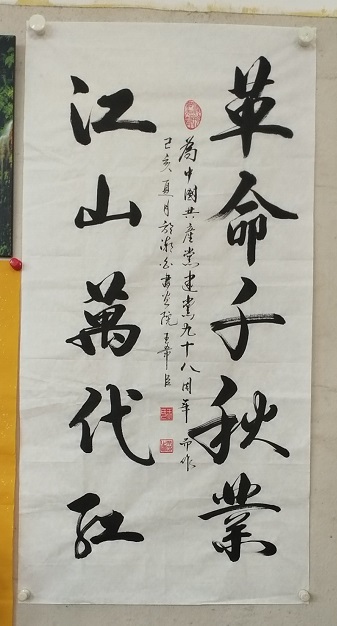 革命千秋業
江山萬代紅
為中國共產黨建黨九十八周年而作
己亥夏月於湖
書畫院王